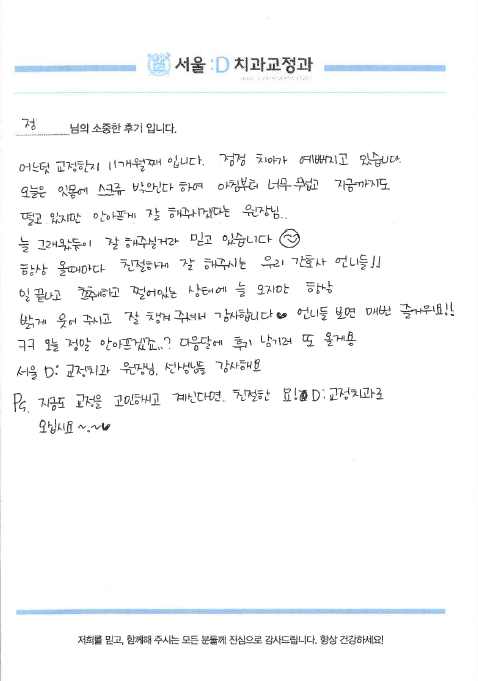 서울 :D 치과교정과
정 님의 소중한 후기 입니다.
어느덧 교정한지 11개월째 입니다. 점점 치아가 예뻐지고 있습니다.
오늘은 잇몸에 스크류 박으신다 하여 아침부터 너무 무섭고 지금까지도
떨고 있지만 안아프게 잘 해주시겠다는 원장님..
늘 그래왔듯이 잘 해주실거라 믿고 있습니다
항상 올때마다 친절하게 잘 해주시는 우리 간호사 언니들!!
일 끝나고 쩔어있는 상태에 늘 오지만 항상
밝게 웃어 주시고 잘 챙겨 주셔서 감사합니다♥ 언니들 보면 매번 즐거워요!!
ㅋㅋ 오늘 정말 안아프겠죠..? 다음달에 후기 남기러 또 올게용
서울 D: 교정치과 원장님, 선생님들 감사해요
PS. 지금도 교정을 고민하시고 계신다면.. 친절한 요기 D:교정치과로
오십시요 ~.~♥
저희를 믿고, 함께해 주시는 모든 분들께 진심으로 감사드립니다. 항상 건강하세요!